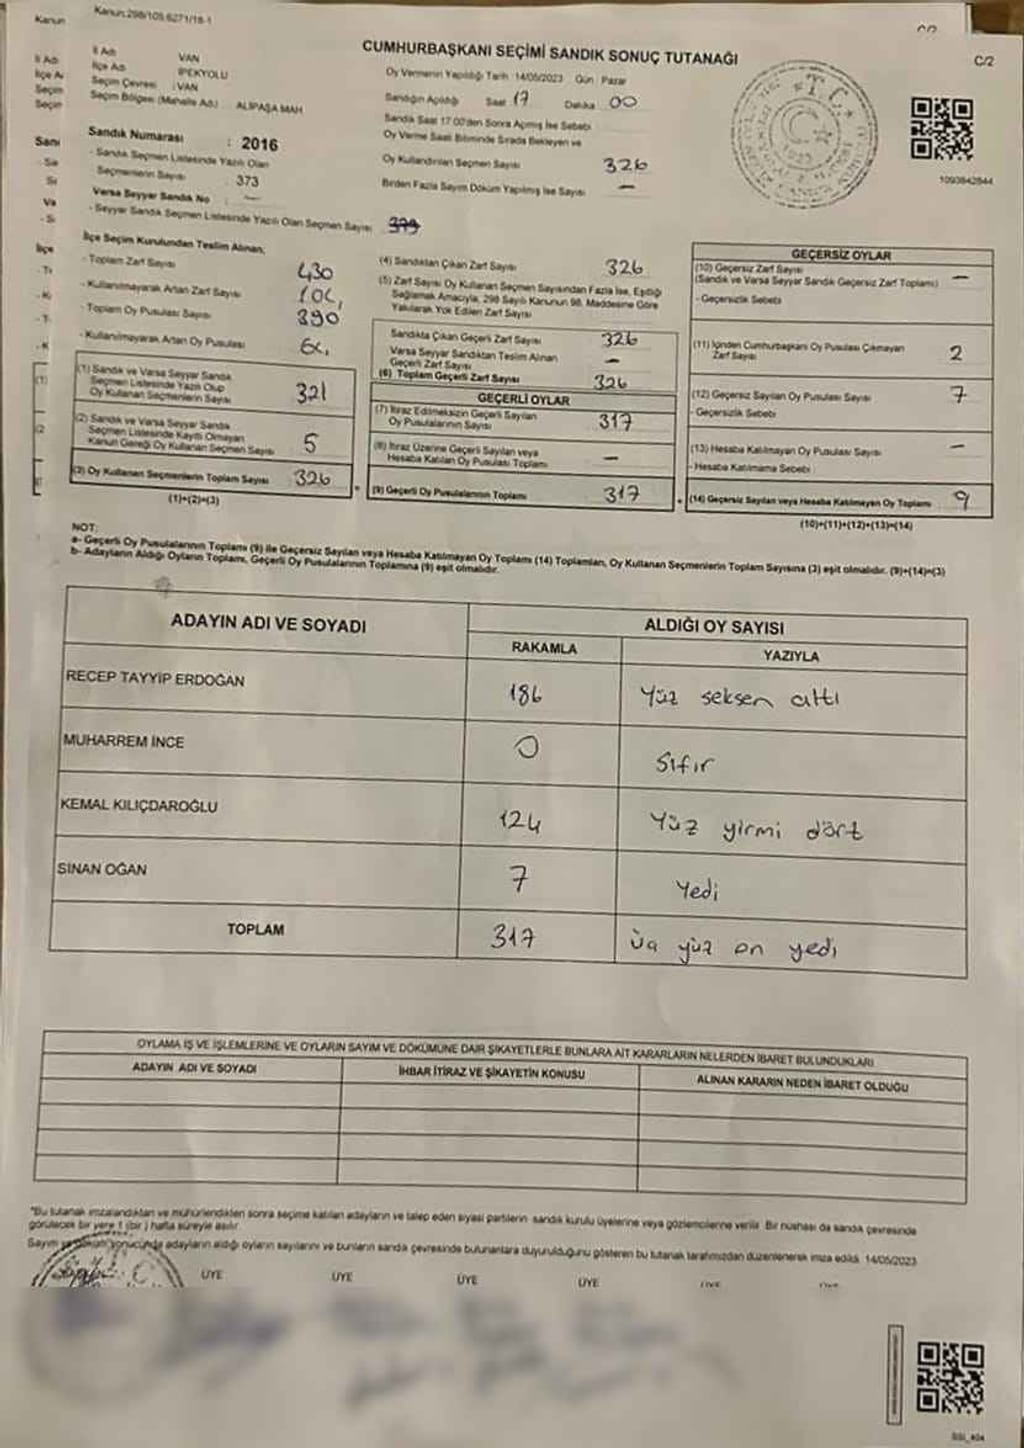 Kanun:298/105,6271/18-1
Kanun
C/2
CUMHURBAŞKANI SEÇİMİ SANDIK SONUÇ TUTANAĞI
İl Adı VAN
İlçe Adı İPEKYOLU
Seçim Çevresi :VAN
Seçim Bölgesi (Mahalle Adı) ALİPAŞA MAH
Sandık Numarası : 2016
- Sandık Seçmen Listesinde Yazılı Olan
Seçmenlerin Sayısı 373
Varsa Seyyar Sandık No : —
- Seyyar Sandık Seçmen Listesinde Yazılı Olan Seçmen Sayısı
Oy Vermenin Yapıldığı Tarih :14/05/2023 Gün : Pazar
Sandığın Açıldığı Saat 17 Dakika 00
Sandık Saat 17.00'den Sonra Açılmış İse Sebebi
Oy Verme Saati Bitiminde Sırada Bekleyen ve
Oy Kullandırılan Seçmen Sayısı 326
Birden Fazla Sayım Döküm Yapılmış İse Sayısı —
1093842844
İlçe Seçim Kurulundan Teslim Alınan;
- Toplam Zarf Sayısı 430
- Kullanılmayarak Artan Zarf Sayısı
- Toplam Oy Pusulası Sayısı 390
- Kullanılmayarak Artan Oy Pusulası
(1) Sandık ve Varsa Seyyar Sandık
Seçmen Listesinde Yazılı Olup
Oy Kullanan Seçmenlerin Sayısı 321
(2) Sandık ve Varsa Seyyar Sandık
Seçmen Listesinde Kayıtlı Olmayan
Kanun Gereği Oy Kullanan Seçmen Sayısı 5
(3) Oy Kullanan Seçmenlerin Toplam Sayısı 326
(1)+(2)=(3)
(4) Sandıktan Çıkan Zarf Sayısı 326
(5) Zarf Sayısı Oy Kullanan Seçmen Sayısından Fazla İse, Eşitliği
Sağlamak Amacıyla, 298 Sayılı Kanunun 98. Maddesine Göre
Yakılarak Yok Edilen Zarf Sayısı
Sandıkta Çıkan Geçerli Zarf Sayısı 326
Varsa Seyyar Sandıktan Teslim Alınan
Geçerli Zarf Sayısı —
(6) Toplam Geçerli Zarf Sayısı 326
GEÇERLİ OYLAR
(7) İtiraz Edilmeksizin Geçerli Sayılan
Oy Pusulalarının Sayısı 317
(8) İtiraz Üzerine Geçerli Sayılan veya
Hesaba Katılan Oy Pusulası Toplamı —
(9) Geçerli Oy Pusulalarının Toplamı 317
GEÇERSİZ OYLAR
(10) Geçersiz Zarf Sayısı —
(Sandık ve Varsa Seyyar Sandık Geçersiz Zarf Toplamı)
- Geçersizlik Sebebi
(11) İçinden Cumhurbaşkanı Oy Pusulası Çıkmayan
Zarf Sayısı 2
(12) Geçersiz Sayılan Oy Pusulası Sayısı 7
- Geçersizlik Sebebi
(13) Hesaba Katılmayan Oy Pusulası Sayısı —
- Hesaba Katılmama Sebebi
(14) Geçersiz Sayılan veya Hesaba Katılmayan Oy Toplamı 9
(10)+(11)+(12)+(13)=(14)
NOT:
a- Geçerli Oy Pusulalarının Toplamı (9) ile Geçersiz Sayılan veya Hesaba Katılmayan Oy Toplamı (14) Toplamları, Oy Kullanan Seçmenlerin Toplam Sayısına (3) eşit olmalıdır. (9)+(14)=(3)
b- Adayların Aldığı Oyların Toplamı, Geçerli Oy Pusulalarının Toplamına (9) eşit olmalıdır.
ADAYIN ADI VE SOYADI ALDIĞI OY SAYISI
RAKAMLA YAZIYLA
RECEP TAYYİP ERDOĞAN 186 Yüz seksen altı
MUHARREM İNCE 0 Sıfır
KEMAL KILIÇDAROĞLU 124 Yüz yirmi dört
SİNAN OĞAN 7 Yedi
TOPLAM 317 üç yüz on yedi
OYLAMA İŞ VE İŞLEMLERİNE VE OYLARIN SAYIM VE DÖKÜMÜNE DAİR ŞİKAYETLERLE BUNLARA AİT KARARLARIN NELERDEN İBARET BULUNDUKLARI
ADAYIN ADI VE SOYADI İHBAR İTİRAZ VE ŞİKAYETİN KONUSU ALINAN KARARIN NEDEN İBARET OLDUĞU
*Bu tutanak imzalandıktan ve mühürlendikten sonra seçime katılan adayların ve talep eden siyasi partilerin sandık kurulu üyelerine veya gözlemcilerine verilir. Bir nüshası da sandık çevresinde
görülecek bir yere 1 (bir) hafta süreyle asılır.
Sayım ve döküm sonucunda adayların aldığı oyların sayılarını ve bunların sandık çevresinde bulunanlara duyurulduğunu gösteren bu tutanak tarafımızdan düzenlenerek imza edildi. 14/05/2023
ÜYE ÜYE ÜYE ÜYE